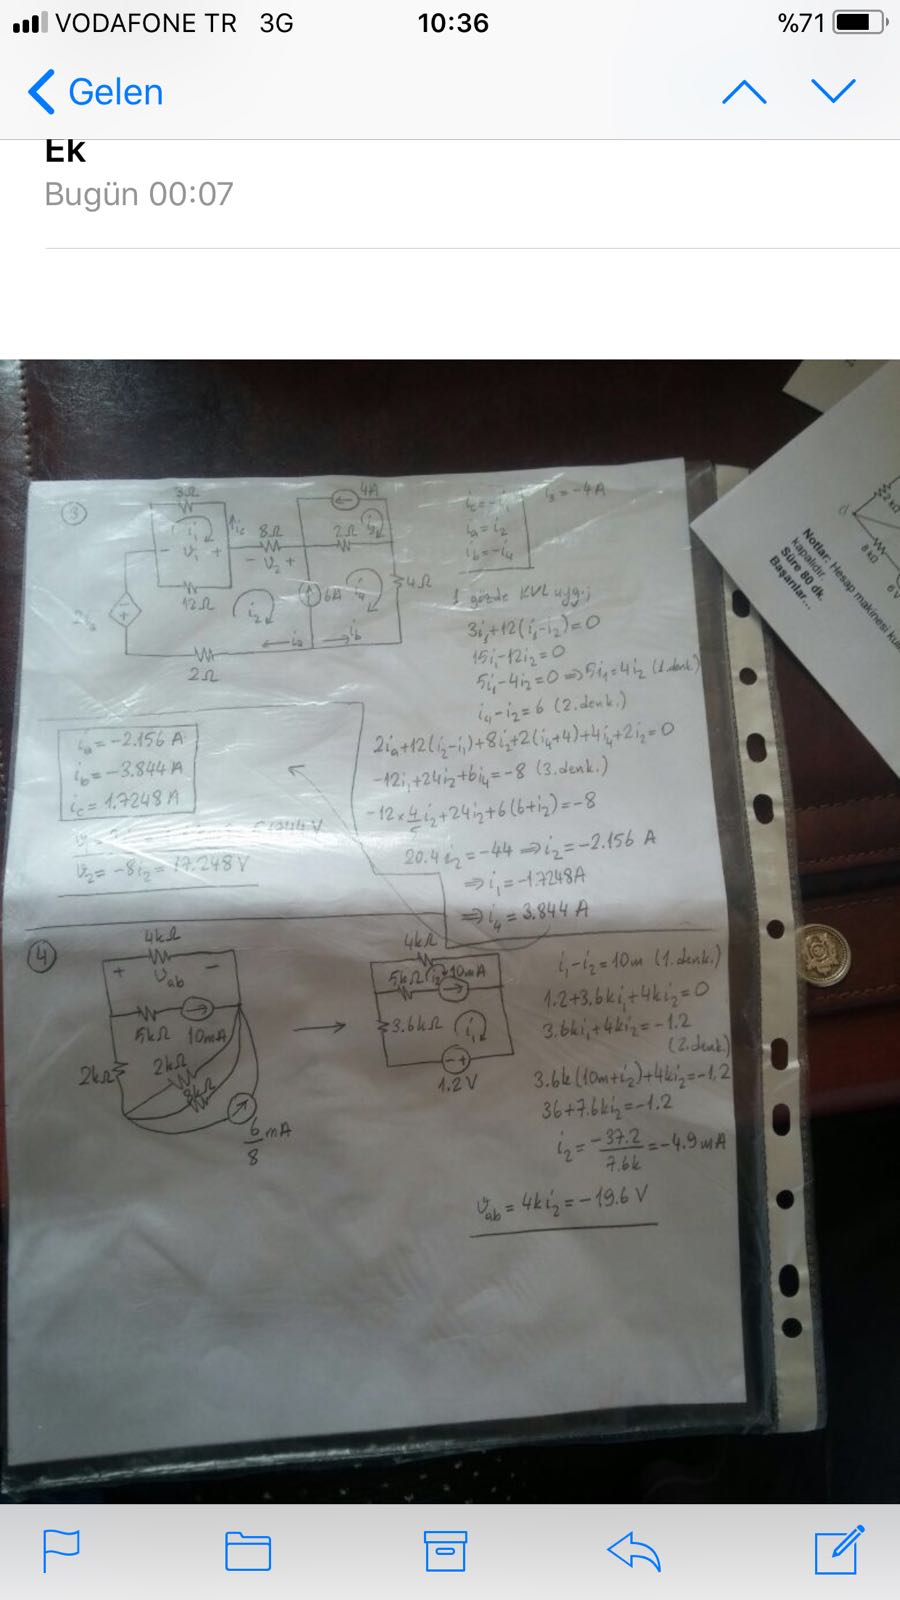 VODAFONE TR 3G 10:36 %71
Gelen
Ek
Bugün 00:07
3
3Ω
4A
i₁
ic
8Ω
2Ω
i₃
- v₁ +
- v₂ +
12Ω
i₂
6A
i₄
4Ω
2ia
ia
ib
2Ω
ic=-i₁
ia=i₂
ib=-i₄
i₃=-4A
1 gözde KVL uyg.;
3i₁+12(i₁-i₂)=0
15i₁-12i₂=0
5i₁-4i₂=0⇒5i₁=4i₂ (1.denk.)
i₄-i₂=6 (2.denk.)
2ia+12(i₂-i₁)+8i₂+2(i₄+4)+4i₄+2i₂=0
-12i₁+24i₂+6i₄=-8 (3.denk.)
-12×4/5 i₂+24i₂+6(6+i₂)=-8
20.4i₂=-44⇒i₂=-2.156 A
⇒i₁=-1.7248A
⇒i₄=3.844 A
ia=-2.156 A
ib=-3.844A
ic=1.7248A
v₂=-8i₂=17.248V
4
4kΩ
+ vab -
5kΩ 10mA
2kΩ
2kΩ
3kΩ
6/8 mA
4kΩ
5kΩ i₂ 10mA
3.6kΩ
i₁
- +
1.2V
i₁-i₂=10m (1.denk.)
1.2+3.6ki₁+4ki₂=0
3.6ki₁+4ki₂=-1.2
(2.denk)
3.6k(10m+i₂)+4ki₂=-1.2
36+7.6ki₂=-1.2
i₂=-37.2/7.6k=-4.9mA
vab=4ki₂=-19.6 V
d
2kΩ
8kΩ
6V
Notlar: Hesap makinesi
kapalıdır.
Süre 80 dk.
Başarılar...